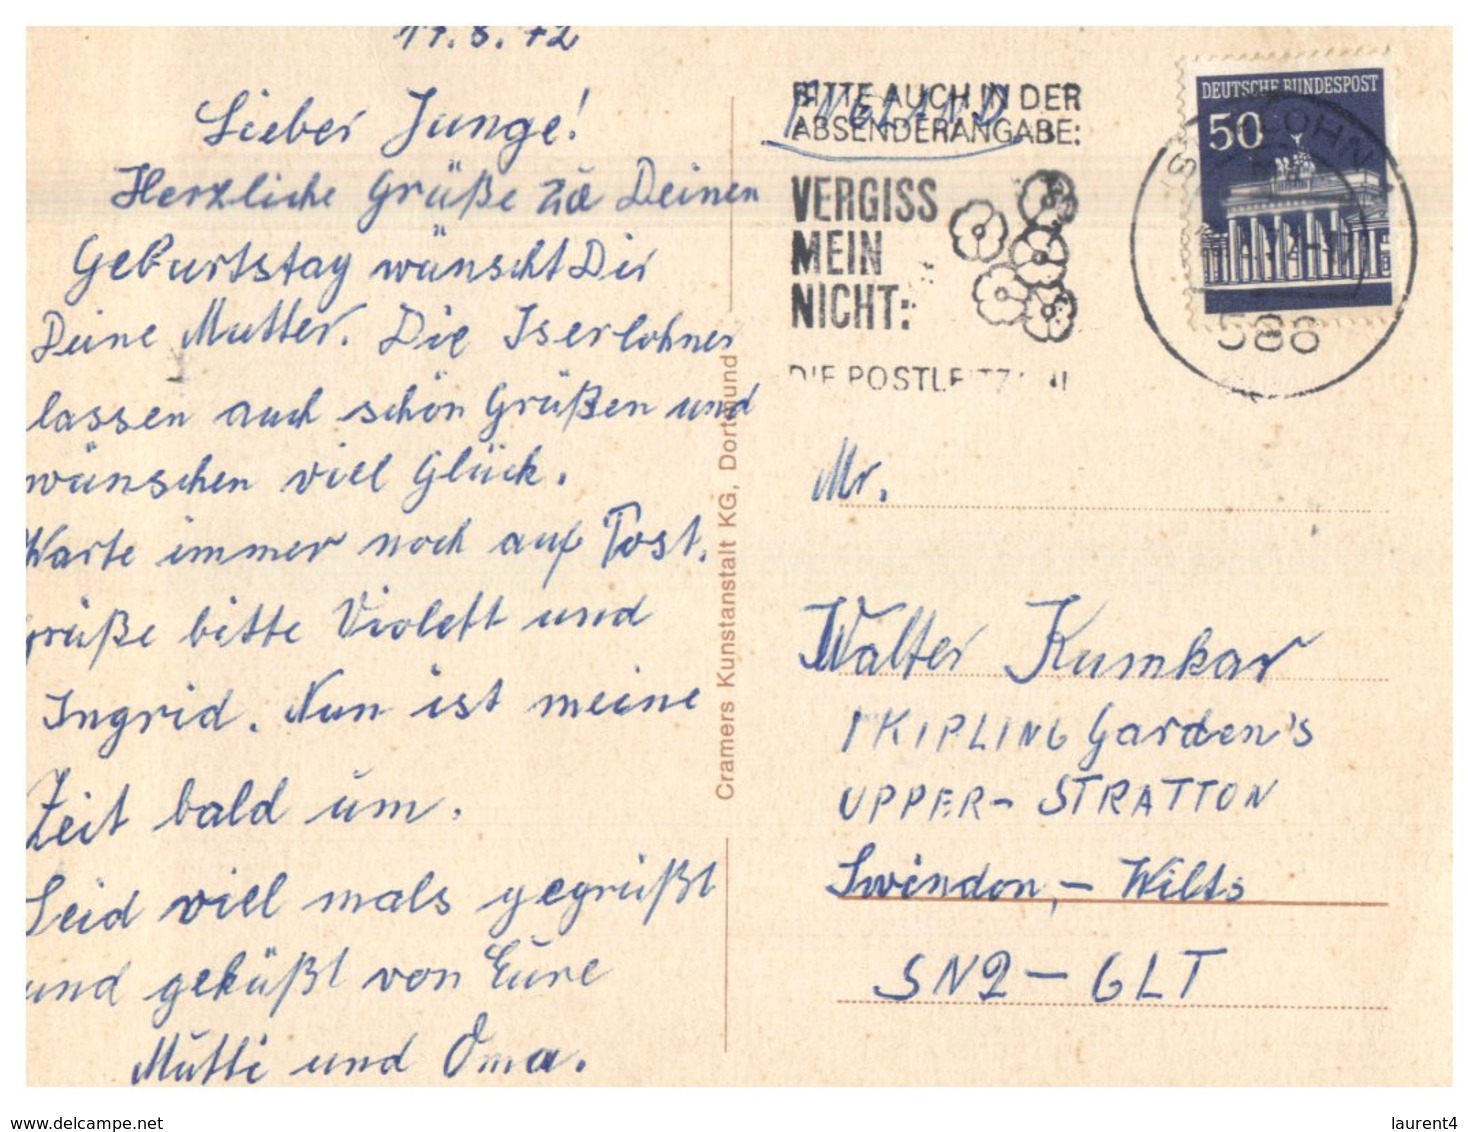 17.8.72
Lieber Junge!
Herzliche Grüße zu Deinen
Geburtstag wünscht Dir
Deine Mutter. Die Iserlohner
lassen auch schön Grüßen und
wünschen viel Glück.
Warte immer noch auf Post.
Grüße bitte Violett und
Ingrid. Nun ist meine
Zeit bald um.
Seid viel mals gegrüßt
und geküßt von Eure
Mutti und Oma.
Cramers Kunstanstalt KG, Dortmund
ENGLAND
BITTE AUCH IN DER
ABSENDERANGABE:
VERGISS
MEIN
NICHT:
DIE POSTLEITZAHL
DEUTSCHE BUNDESPOST
50
ISERLOHN
586
Mr.
Walter Kumkar
1 KIPLING Garden's
UPPER - STRATTON
Swindon, - Wilts
SN2 - 6LT
laurent4